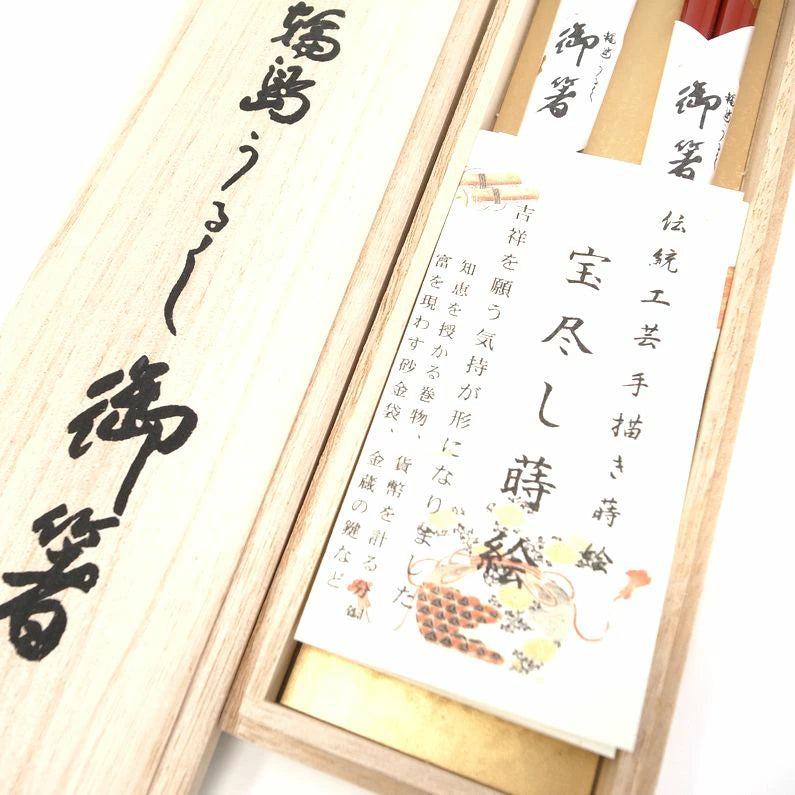 輪島うるし
御箸
輪島うるし
御箸
輪島うるし
御箸
伝統工芸手描き蒔絵
宝尽し蒔絵
吉祥を願う気持が形になりました
知恵を授かる巻物、貨幣を計る分銅
富を現わす砂金袋、金蔵の鍵など